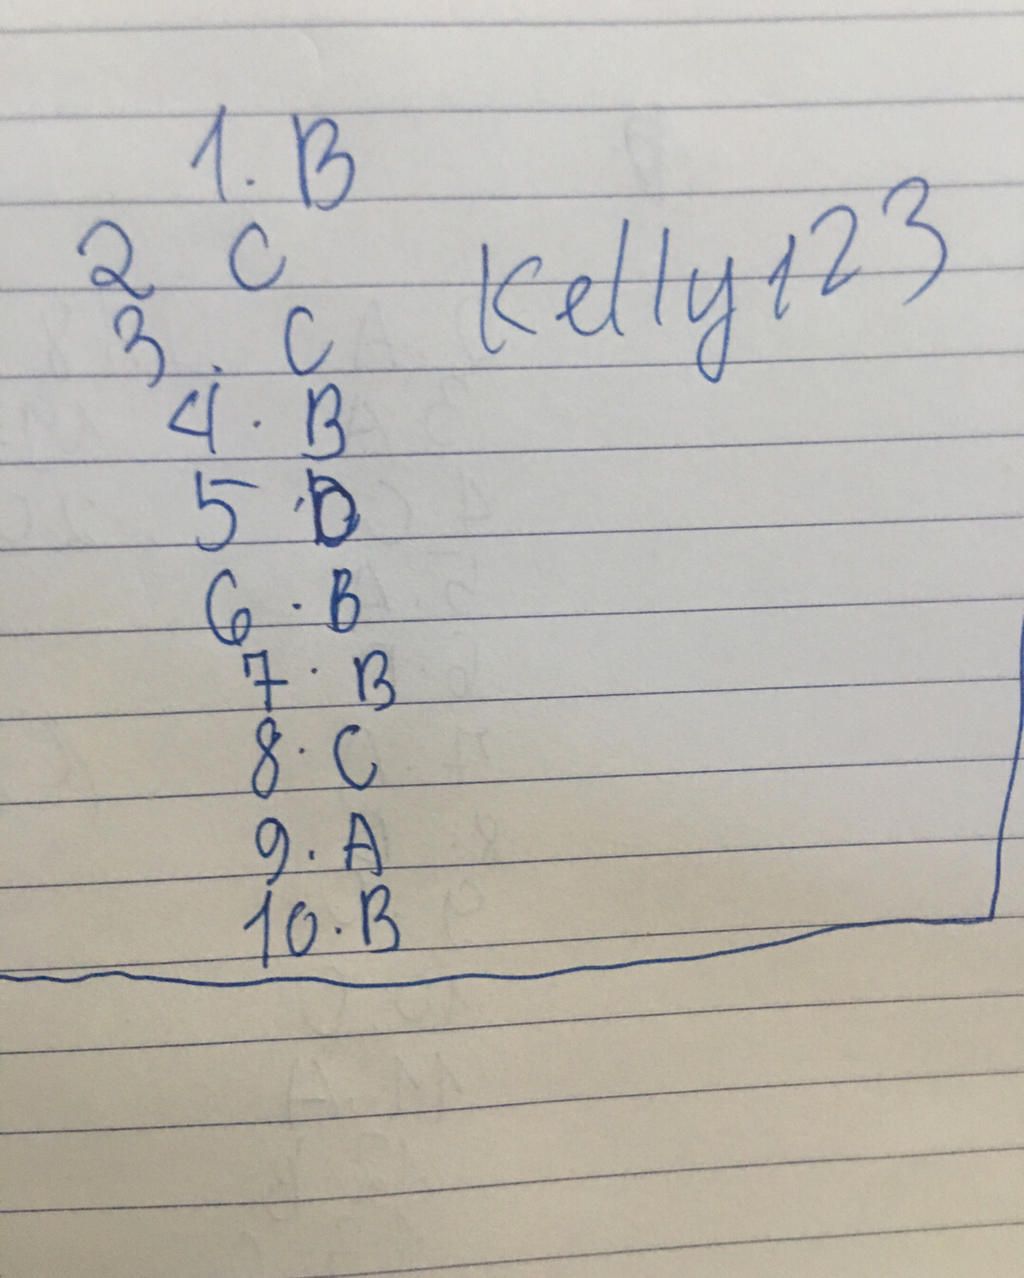 1. B
2 C
Kelly123
3. C
4. B
5. D
6. B
7. B
8. C
9. A
10. B